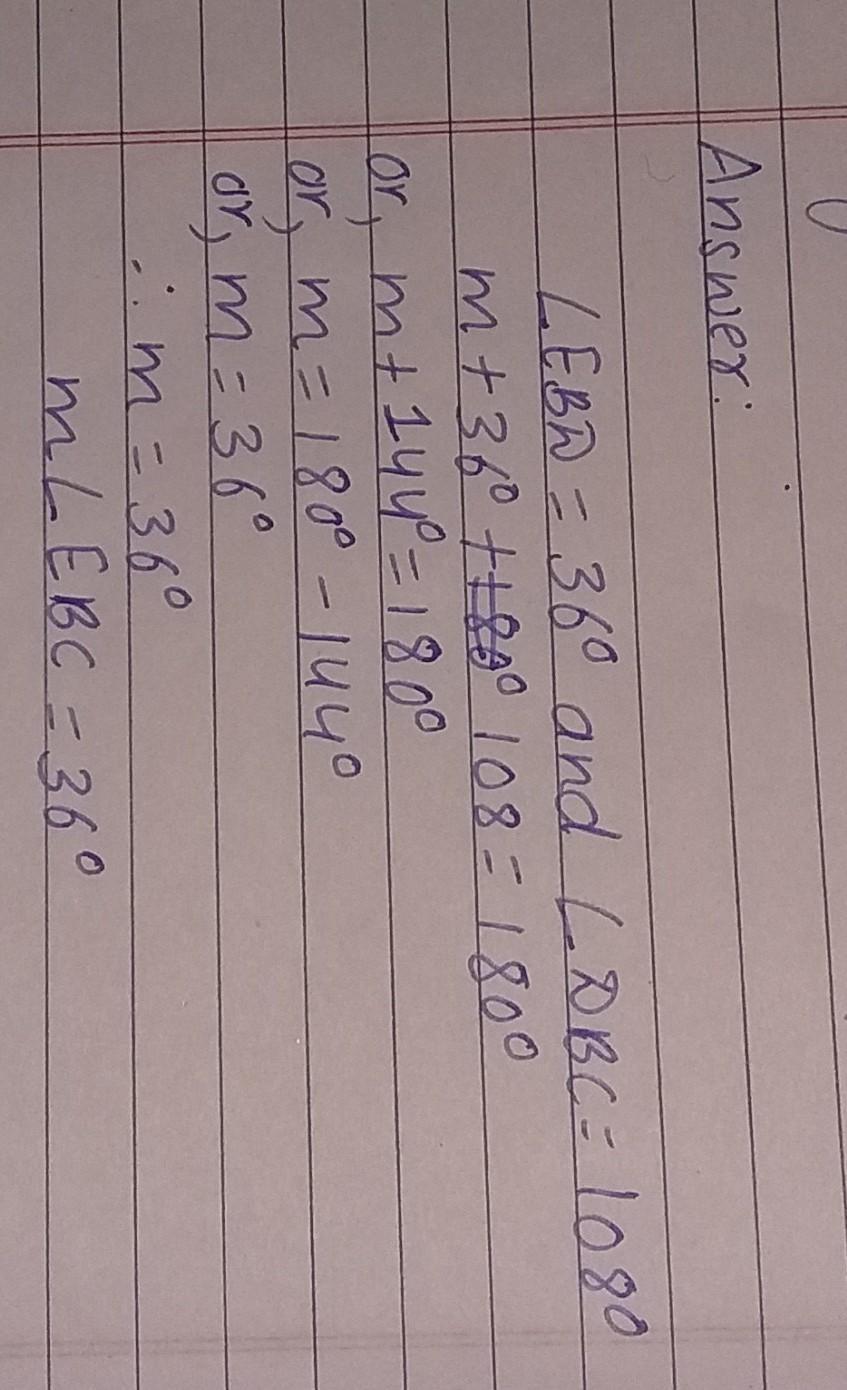 Answer:
∠EBD = 36° and ∠DBC = 108°
m + 36° + 180° 108 = 180°
or, m + 144° = 180°
or, m = 180° - 144°
or, m = 36°
∴ m = 36°
m∠EBC = 36°